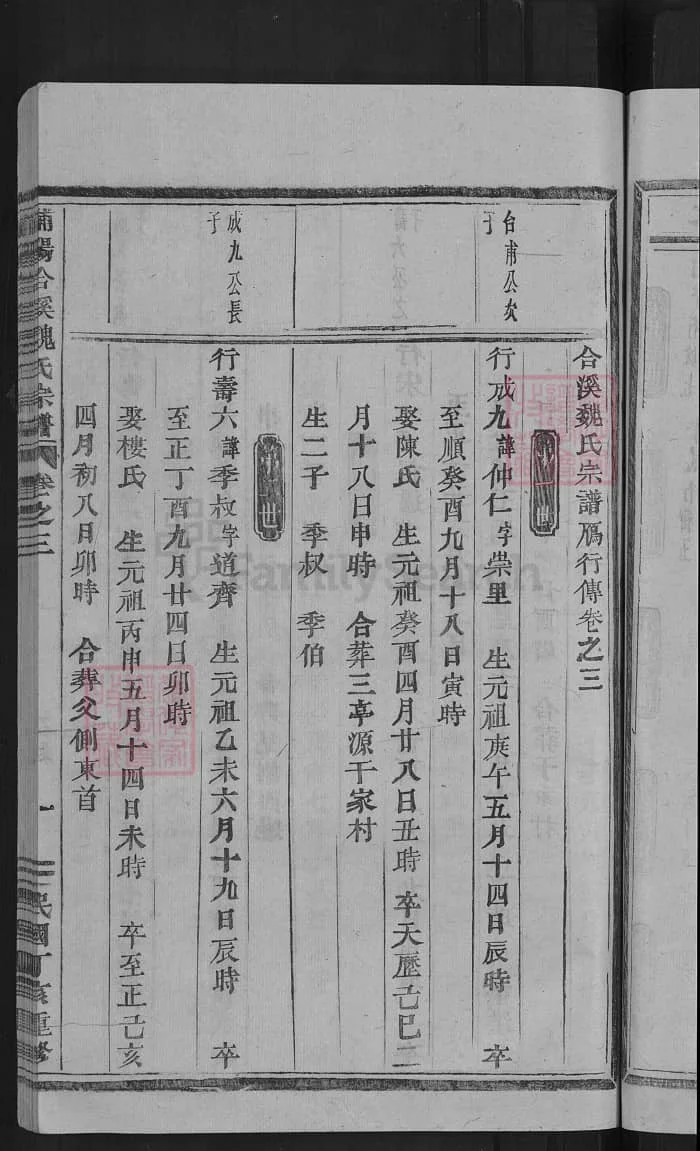 合溪魏氏宗譜鴈行傳卷之三
第一世
台甫公次
子
行成九諱仲仁字崇里　生元祖庚午五月十四日辰時　卒
至順癸酉九月十八日寅時
娶陳氏　生元祖癸酉四月廿八日丑時　卒天歷己巳二
月十八日申時　合葬三亭源干家村
生二子　季叔　季伯
世
成九公長
子
行壽六諱季叔字道齊　生元祖乙未六月十九日辰時　卒
至正丁酉九月廿四日卯時
娶樓氏　生元祖丙申五月十四日未時　卒至正己亥
四月初八日卯時　合葬父側東首
浦陽合溪魏氏宗譜　卷之三　一　民國丁亥重修
FamilySearch